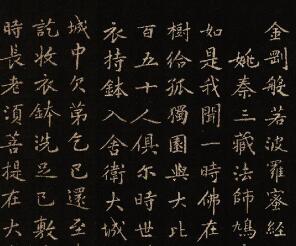 金剛般若波羅蜜經
姚秦三藏法師鳩
如是我聞一時佛在
樹給孤獨園與大比
百五十人俱尒時世
衣持鉢入舍衛大城
城中次第乞已還至
訖收衣鉢洗足已敷
時長老須菩提在大